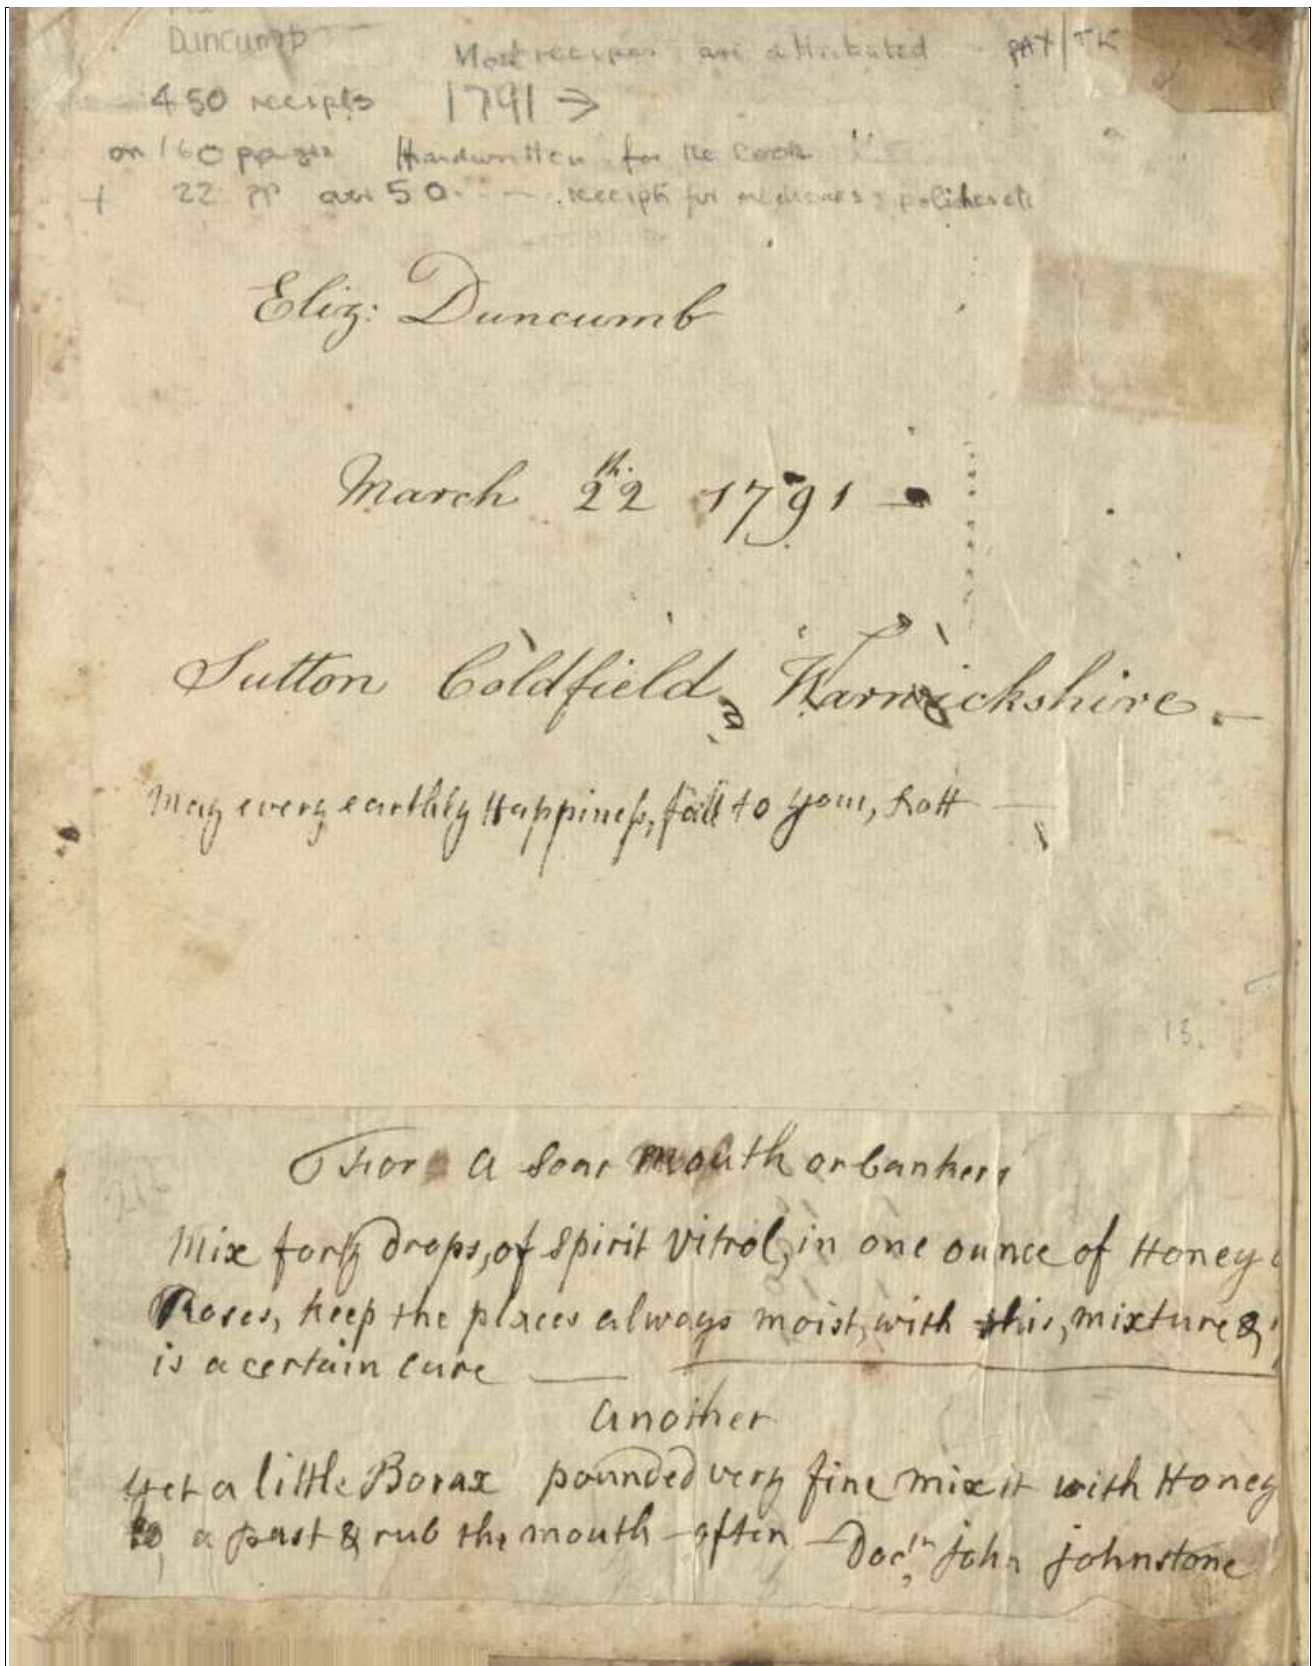 Duncumb
Most recipes are attributed
450 receipts 1791 →
on 160 pages Handwritten for the Cook
+ 22 pp over 50 receipts for medicines
Eliz: Duncumb
March 22th. 1791
Sutton Coldfield, Warwickshire.
May every earthly Happiness, fall to your, Lott
13.
For a Soar mouth or Cankers
Mix forty drops, of Spirit Vitrol, in one ounce of Honey
Roses, keep the places always moist, with this, mixture &
is a certain Cure
Another
Get a little Borax pounded very fine mix it with Honey
to, a past & rub the mouth often Docr. John Johnstone